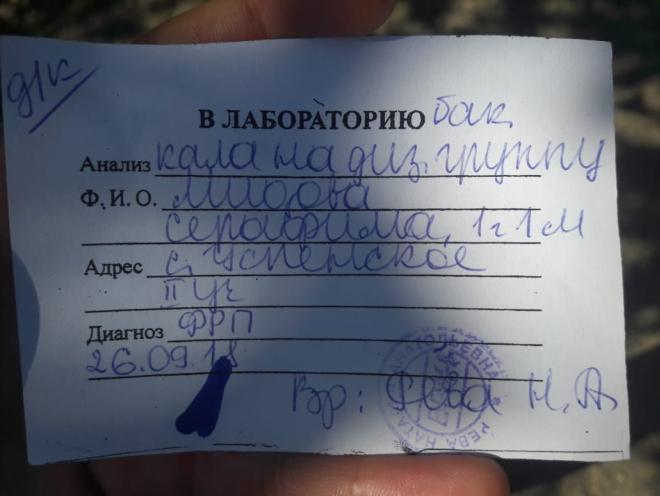 д/к
В ЛАБОРАТОРИЮ бак.
Анализ кала на диз. группу
Ф. И. О.
Серафима, 1 г 1 м
Адрес с. Успенское
II уч
Диагноз ФРП
26.09.18
Вр: Рева Н. А.
АНАТОЛЬЕВНА
РЕВА НАТА